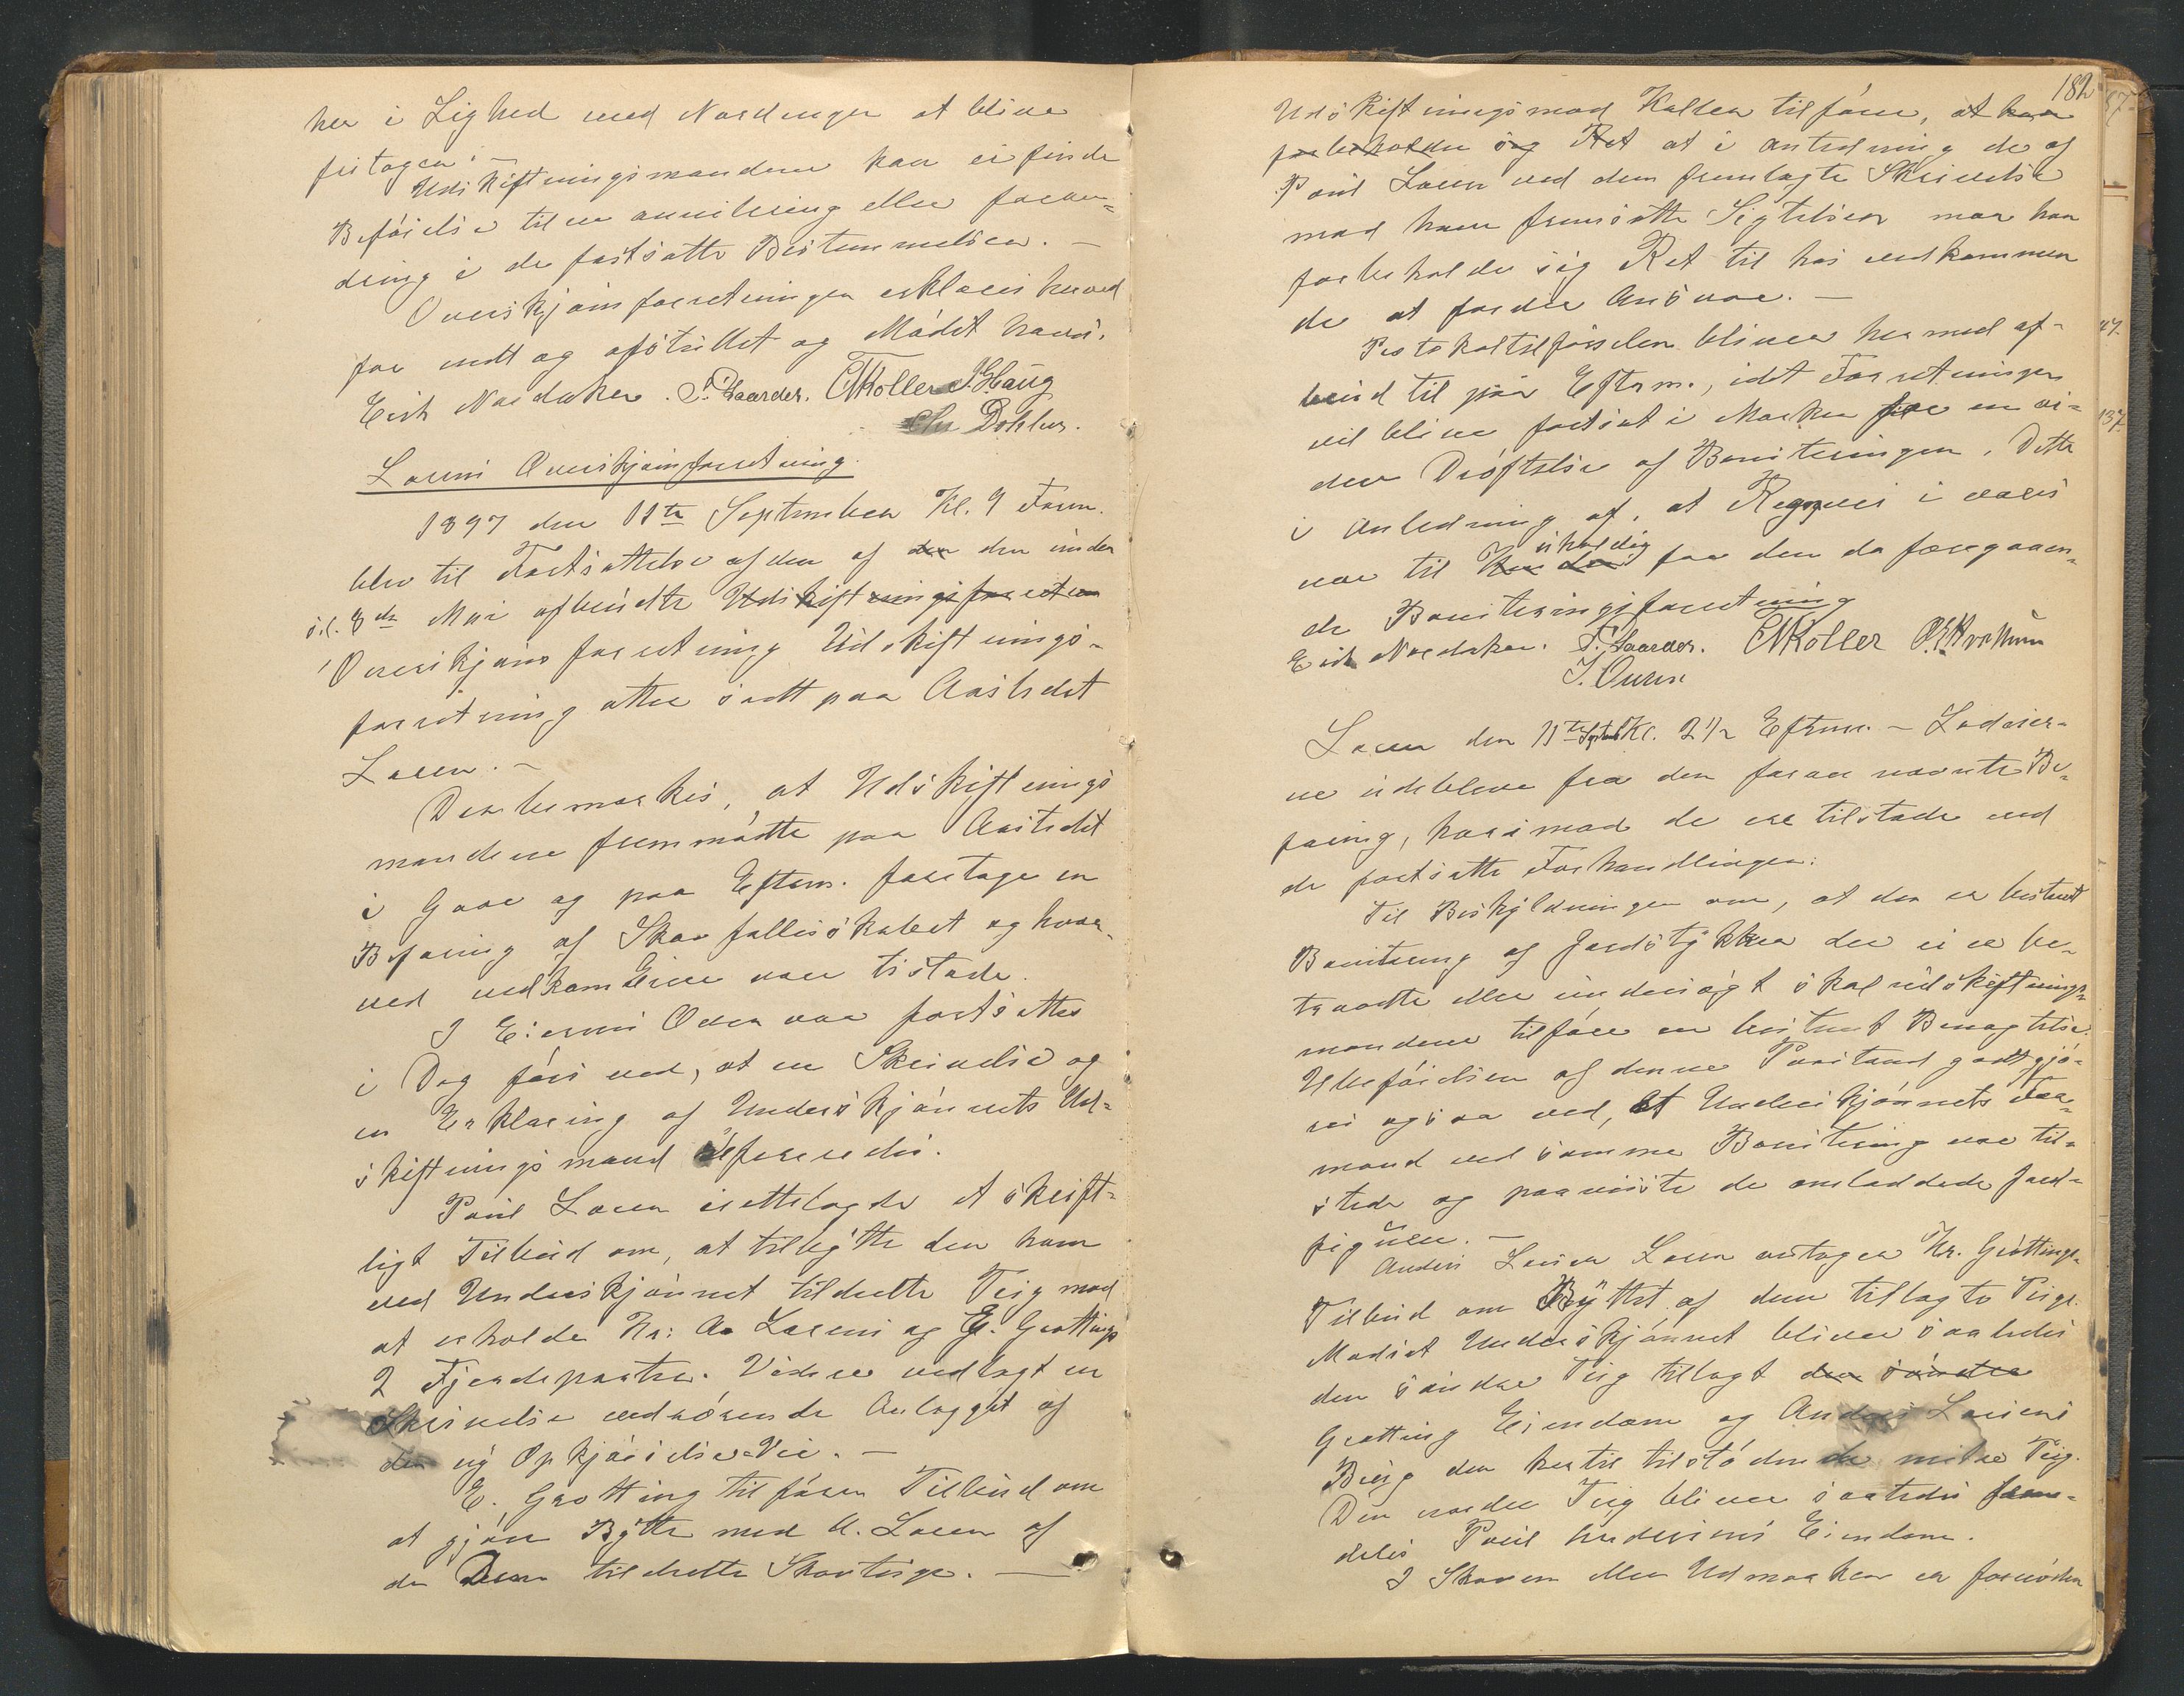 her i Lighed med Nordengen at blive
fritagen. —
Udskiftningsmændene kan ei finde
Beføielse til en anvikring eller foran-
dring i de fastsatte Bestemmelser. —
Overskjønsforretningen erklæres herved
for endt og afsluttet og Mødet hævet.
Erik Nordaker. P. Gaarder. E Moller J. Haug
Chr Dohlen.
Losens Overskjønsforretning.
1897 den 11te September Kl. 9 Form.
blev til Fortsættelse af den af den den under
s.l. 8de Mai afbrudte Udskiftningsforretn
Overskjøns forretning Udskiftnings-
forretning atter sadt paa Aastedet
Losen. —
Der bemærkes, at Udskiftnings
mændene fremmødte paa Aastedet
i Gaar og paa Efterm. foretoge en
Befaring af Skovfællesskabet og hvor-
ved vedkom Eiere vare tilstede.
I Eiernes Overvær fortsættes
i Dag førs ved, at en Skrivelse og
en Erklæring af Underskjønnets Ud-
skiftningsmand refereredes.
Poul Losen irettelagde et skrift-
ligt Tilbud om, at tilbytte den ham
ved Underskjønnet tildelte Teig mod
at erholde Hr: A. Losens og E. Grøttings
2 Fjerdeparter. Videre vedlagt en
Skrivelse vedrørende Anlægget af
den ny Opkjørselsvei. —
E. Grøtting tilfører Tilbud om
at gjøre Bytte med A. Losen af
de Dem tildelte Skovteige. —
182
Udskiftningsmand Kolken tilfører, at han
forbeholder sig Ret at i Anledning de af
Poul Losen ved dem fremlagte Skrivelse
mod ham fremsatte Sigtelser maa han
forbeholde sig Ret til hos vedkommen
de at fordre Ansvar. —
Protokoltilførselen bliver hermed af-
brud til paa Efterm., idet Forretningen
vil blive fortsat i Marken for en vi-
dere Drøftelse af Boniteringen. Dette
i Anledning af, at Regnvei i vores
var til Hinder uheldig for den da foregaaen-
de Boniteringsforretning
Erik Nordaker. P. Gaarder. E Moller
J. Ouren
Losen den 11te Septbr Kl. 2 1/2 Efterm. — Lodeier-
ne udebleve fra den foran nævnte Be-
faring, hvorimod de ere tilstede ved
de fortsatte Forhandlinger:
Til Beskyldningen om, at der er bestemt
Bonitering af Jordstykker der ei er be-
traadte eller undersøgt skal udskiftnings-
mændene tilføre en bestemt Benægtelse.
Ubeføielsen af denne Paastand godtgjø-
res ogsaa ved, at Underskjønnets For-
mand ved samme Bonitering var til-
stede og paaviste de omladdede Jord-
figurer. —
Anders Larsen Losen antager Hr. Grøttings
Tilbud om Byttet af dem tillagte Teige.
Modsat Underskjønnet bliver saaledes
den søndre Teig tillagt den søndre
Grøtting Eiendom og Anders Larsens
Brug den hertil tilstødende midtre Teig.
Den nordre Teig bliver saaledes frem-
deles Poul Andersens Eiendom.
I Skoven eller Udmarken er fornøden